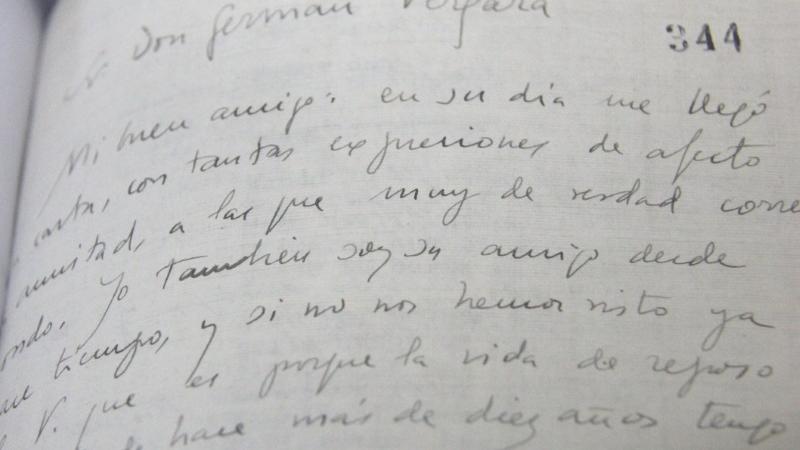 Don German Vergara
344
Mi buen amigo: en su dia me llegó
carta, con tantas expresiones de afecto
amistad, a las que muy de verdad corre
ondo. Yo también soy su amigo desde
tiempo, y si no nos hemos visto ya
V. que es porque la vida de reposo
hace más de diez años tengo